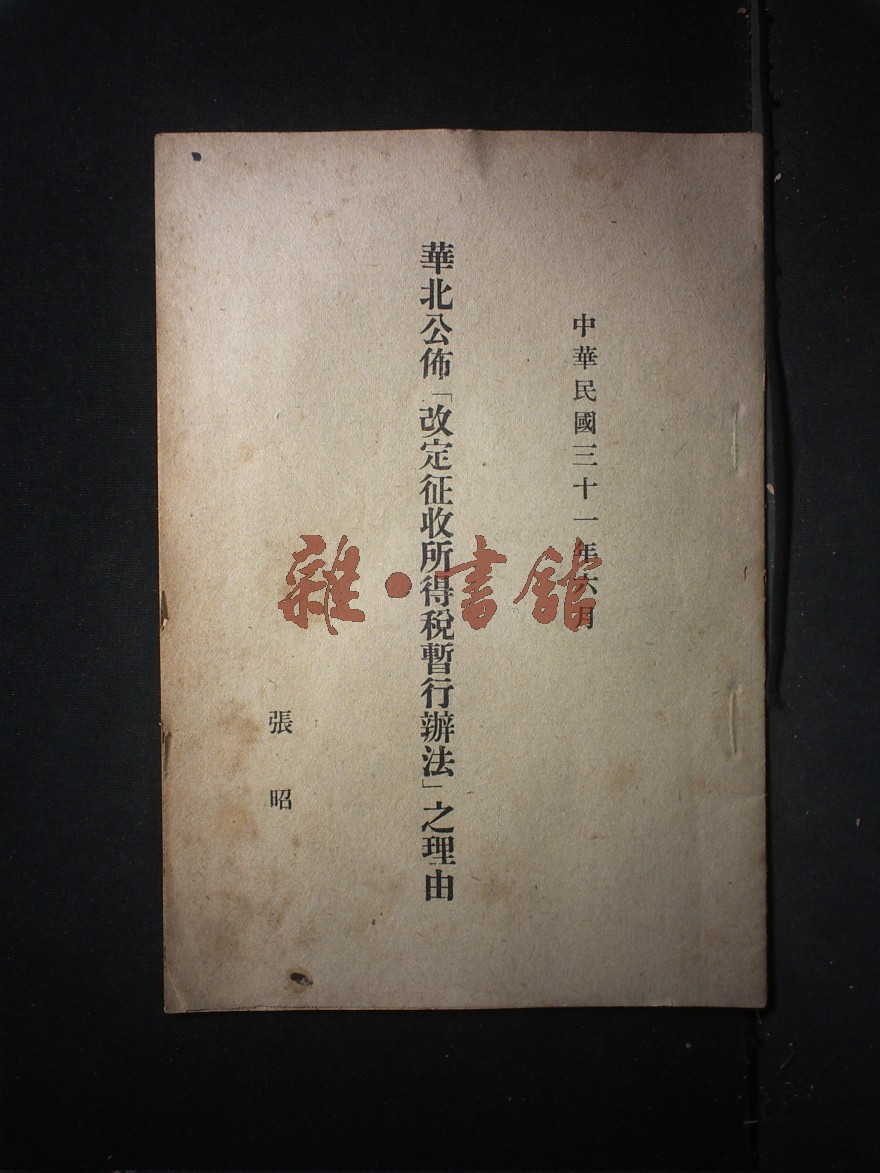 中華民國三十一年六月
華北公佈「改定征收所得稅暫行辦法」之理由
張昭
雜·書館